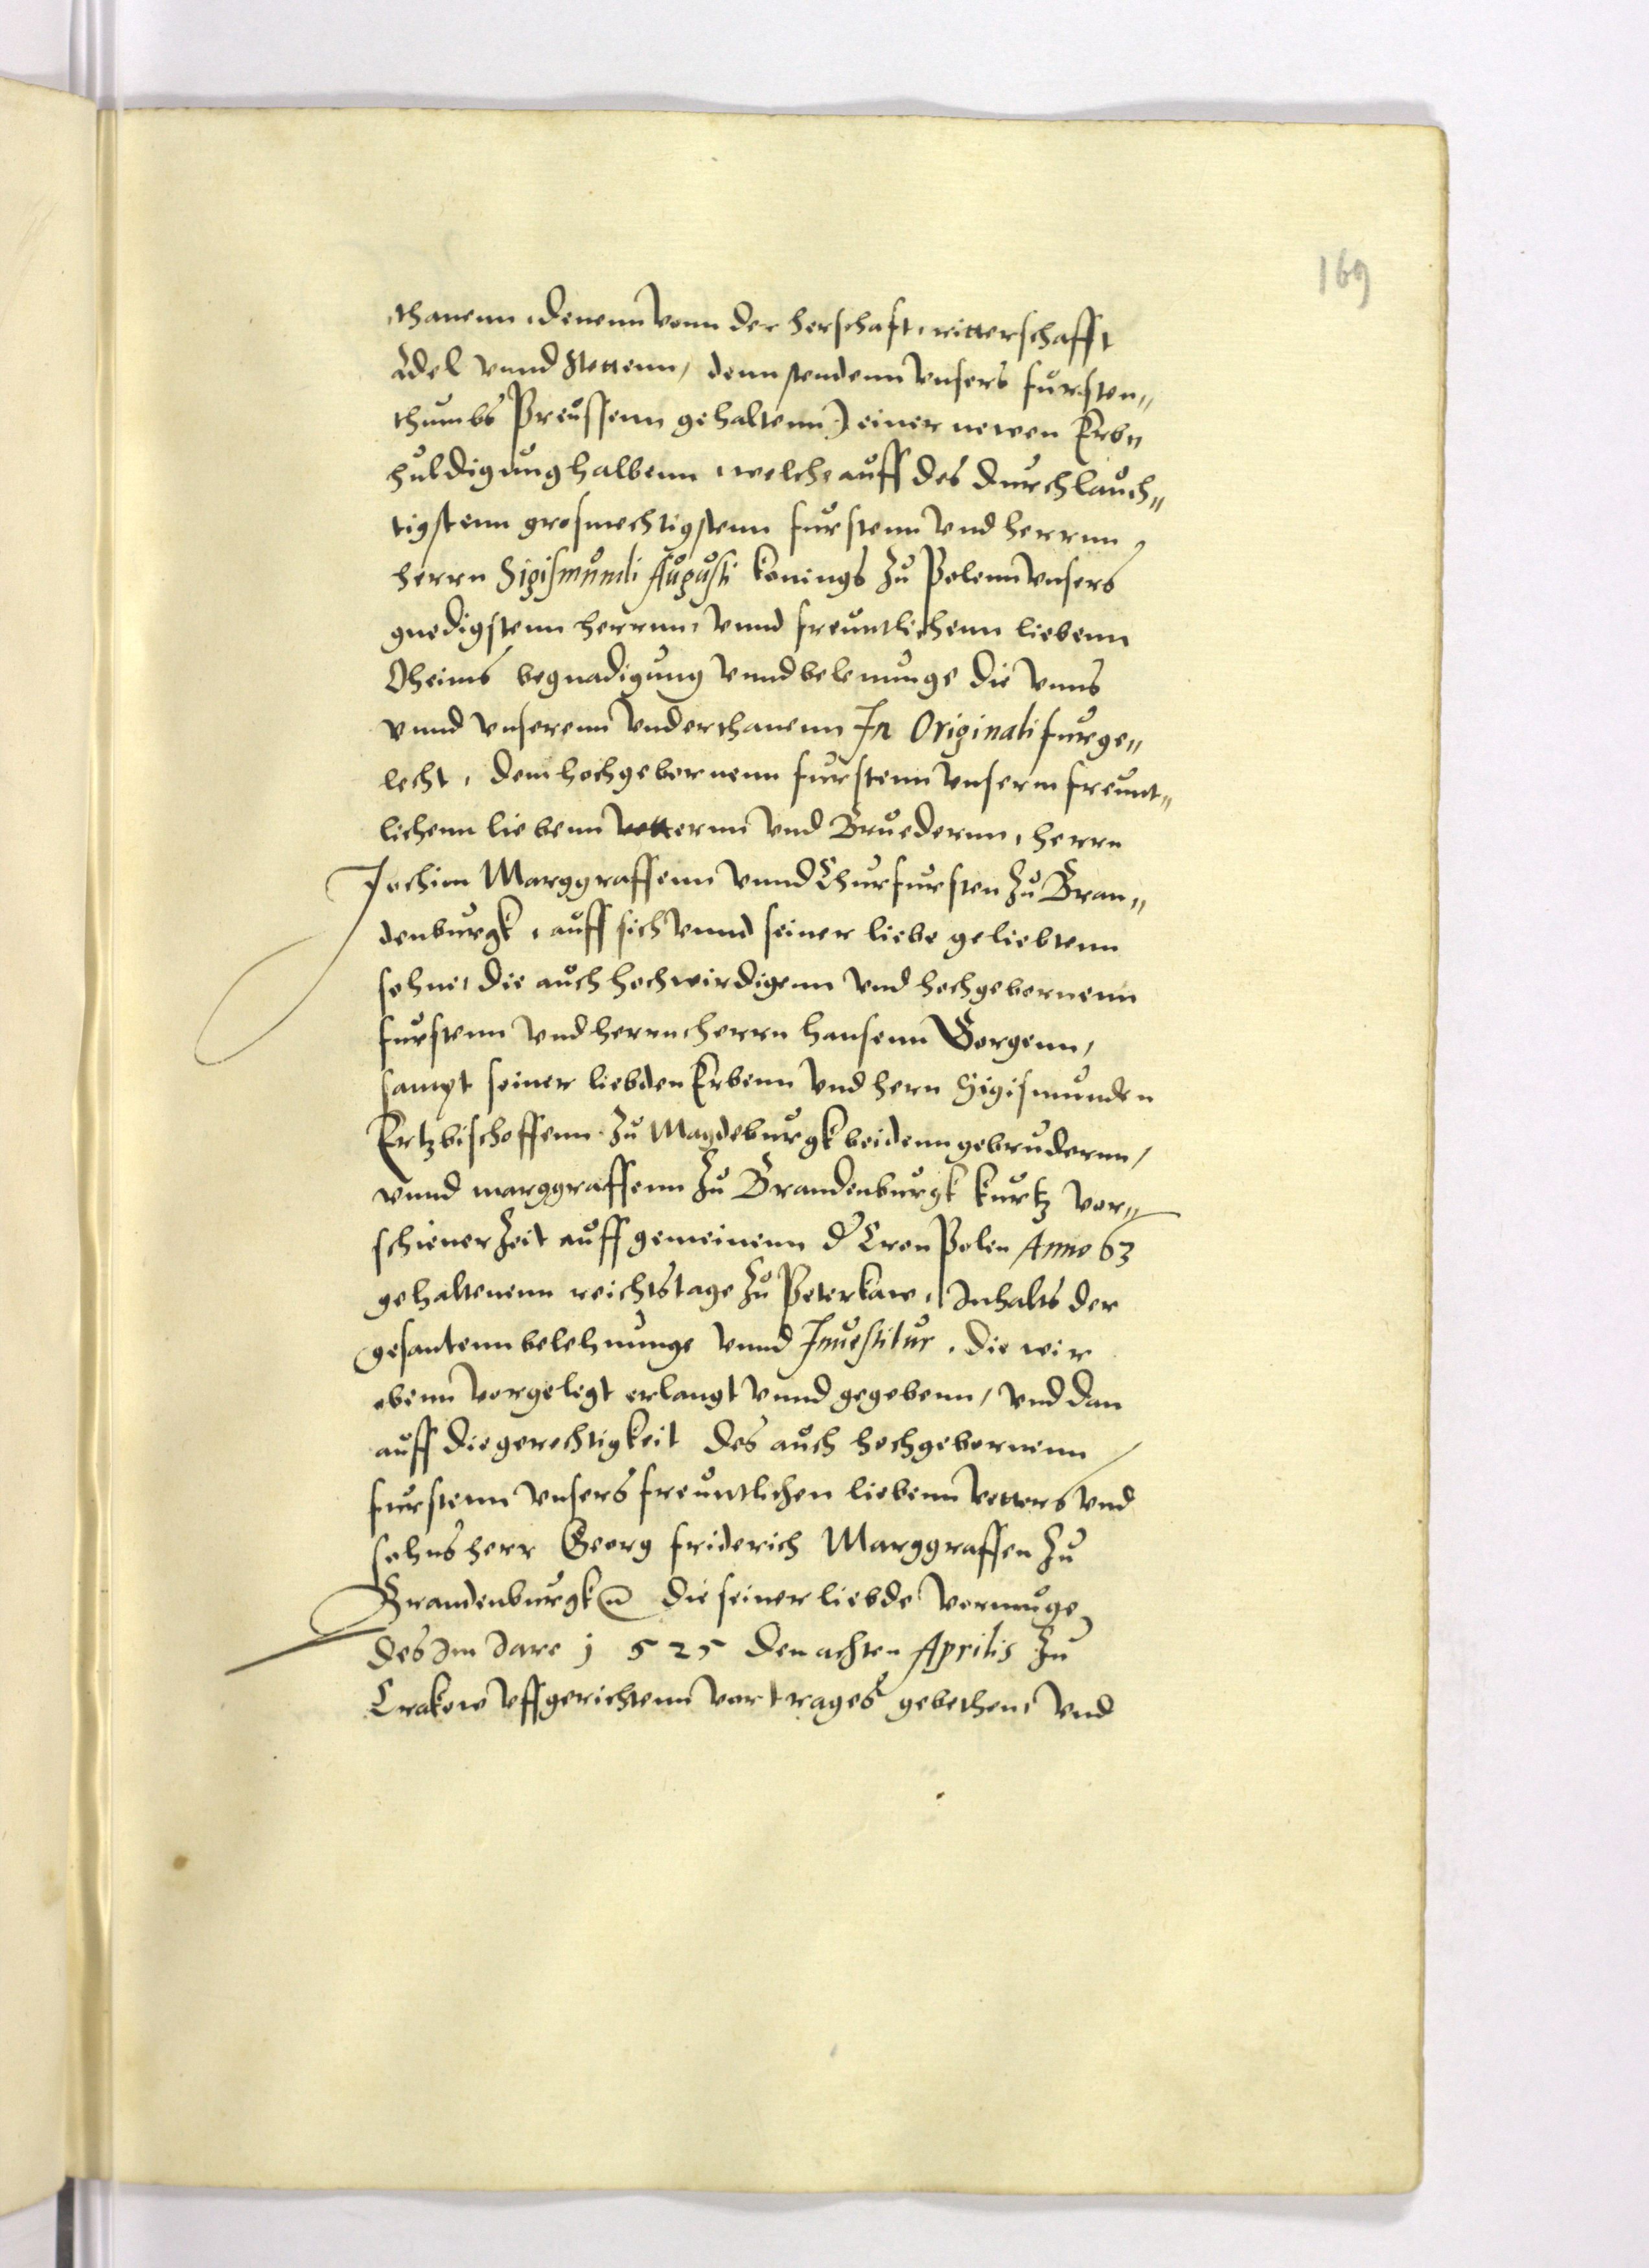 169
thanenn, denenn vonn der herschaft, ritterschafft
Adel vnnd Stettenn, denn stendenn vnsers fursten„
thumbs Preussenn gehaltenn) einer newen Erb„
huldigung halbenn, welche auff des durchlauch„
tigstenn grosmechtigstenn furstenn vnd herrnn,
herrn Sigismundi Augusti konings zu Polenn vnsers
gnedigstenn herrnn, vnnd freuntlichenn liebenn
Oheims begnadigung vnnd belenunge die vnns
vnnd vnserenn vnderthanenn In Originali furge„
lecht, dem hochgebornenn furstenn vnserm freunt„
lichenn liebenn vetternn vnd Bruedernn, herrn
Jochim Marggraffenn vnnd Churfursten zu Bran„
denburgk, auff sich vnnd seiner liebe geliebtenn
sohne, die auch hochwirdigenn vnd hochgebornenn
furstenn vnd herrn herrn hansenn Gorgenn,
sampt seiner liebden Erbenn vnd hern Sigismunden
Ertzbischoffenn zu Magdeburgk beidenn gebrudernn,
vnnd marggraffenn zu Brandenburgk kurtz vor„
schiener Zeit auff gemeinenn d Cron Polen Anno 63
gehaltenenn reichstage zu Peterkaw, Inhalts der
gesantenn belehnunge vnnd Inuestitur, die wir
ebenn vorgelegt erlangt vnnd gegebenn, vnd dan
auff die gerechtigkeit des auch hochgebornenn
furstenn vnsers freuntlichen liebenn vetters vnd
sohns herr Georg friderich Marggraffen zu
Brandenburgk die seiner liebde vormuge
des im Jare 1525 den achten Aprilis zu
Crakow vffgerichtenn vortrages gebethen, vnd